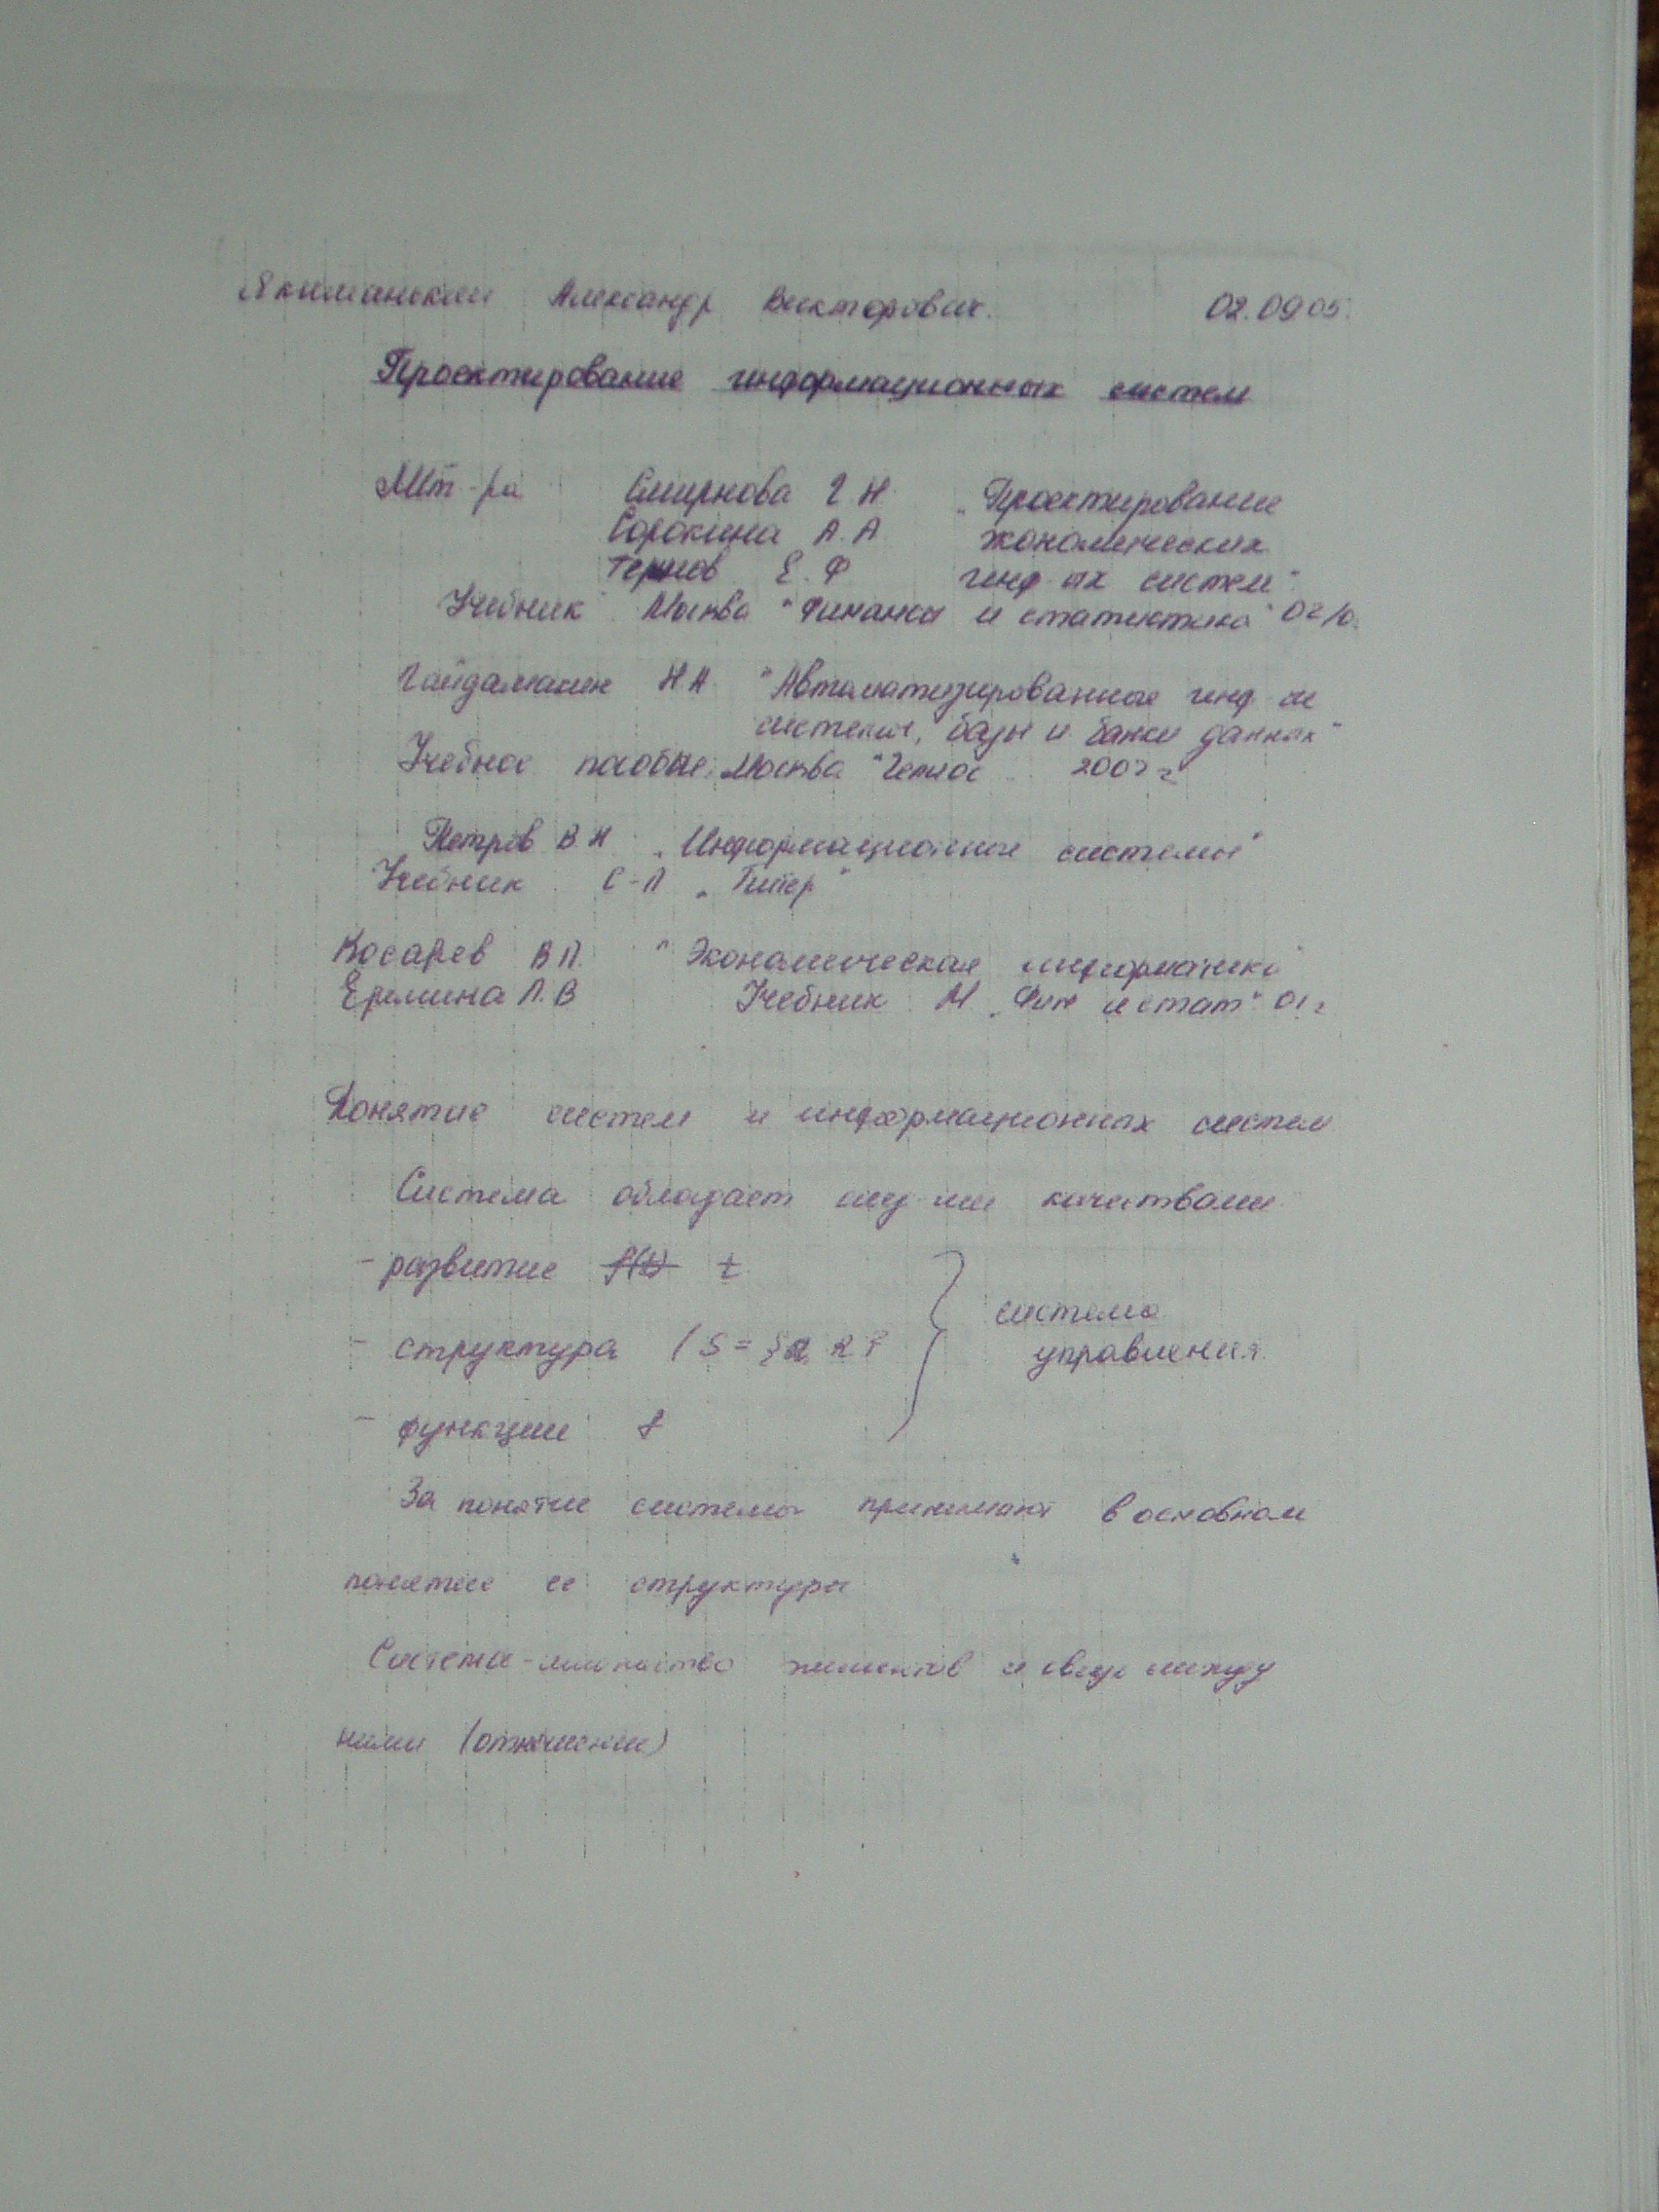 Якиманский Александр Викторович. 02.09.05.
Проектирование информационных систем
Лит-ра Смирнова Г Н. "Проектирование
Сорокина А. А экономических
Тельнов Е. Ф инф-ых систем"
Учебник Москва "Финансы и статистика"
Гайдамакин Н А. "Автоматизированные инф-ые
системы, базы и банки данных"
Учебное пособие. Москва "Гелиос
Петров В Н "Информационные системы"
Учебник С-П "Питер"
Косарев В П. "Экономическая информатика"
Еремина Л. В Учебник М "Фин и стат" 01 г
Понятие систем и информационных систем
Система обладает след-ми качествами
- развитие f(t) t
- структура система
управления.
- функции f
За понятие системы принимают в основном
понятие ее структуры
Система - множество элементов и связи между
ними (отношении)